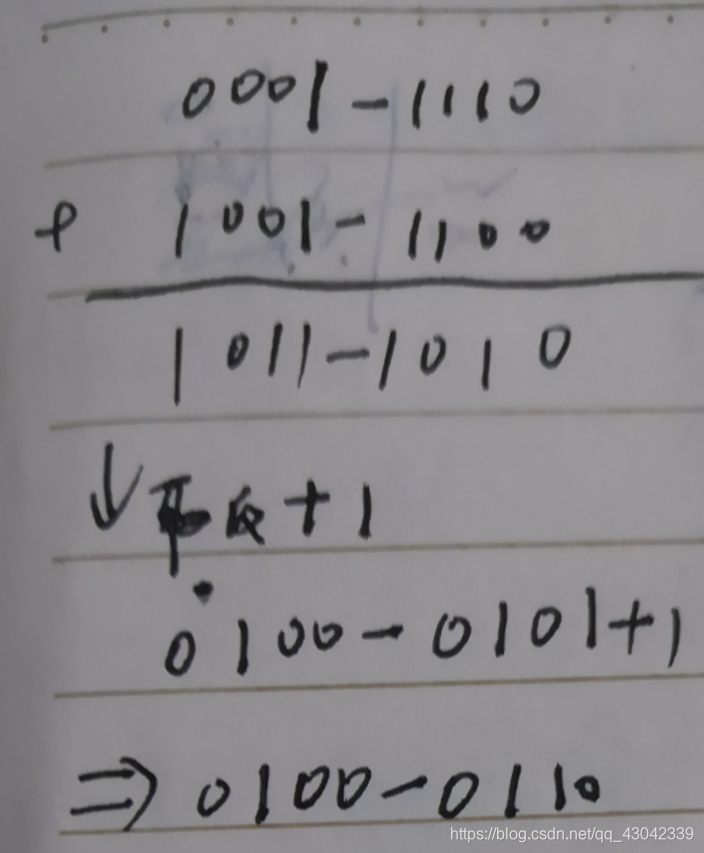 0001-1110
+ 1001-1100
1011-1010
↓ 取反+1
0100-0101+1
⇒ 0100-0110
https://blog.csdn.net/qq_43042339